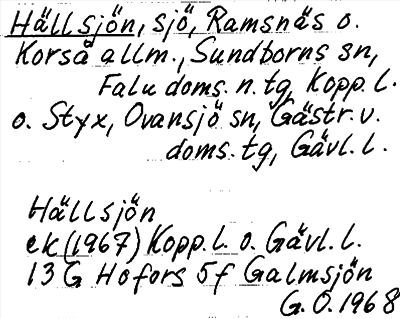 Hällsjön, sjö, Ramsnäs o.
Korså allm., Sundborns sn,
Falu doms. n. tg, Kopp. l.
o. Styx, Ovansjö sn, Gästr. v.
doms. tg, Gävl. l.
Hällsjön
ek (1967) Kopp. l. o. Gävl. l.
13 G Hofors 5f Galmsjön
G. O. 1968